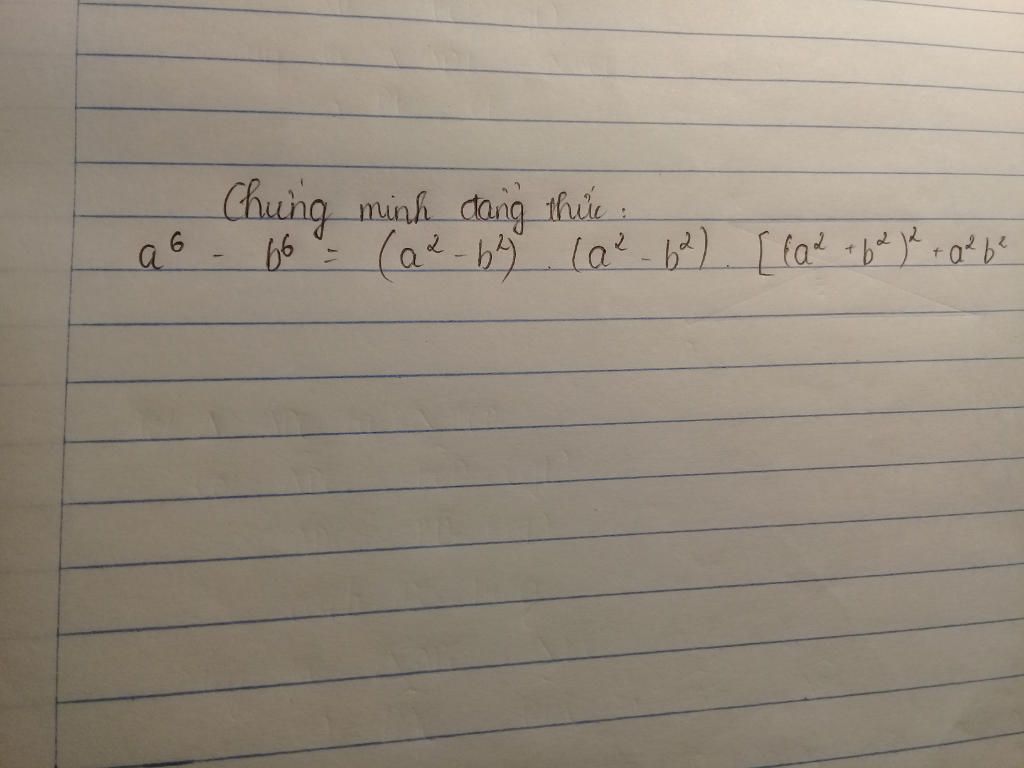 Chứng minh đẳng thức:
a⁶ - b⁶ = (a² - b²) . (a² - b²) . [(a² + b²)² + a²b²